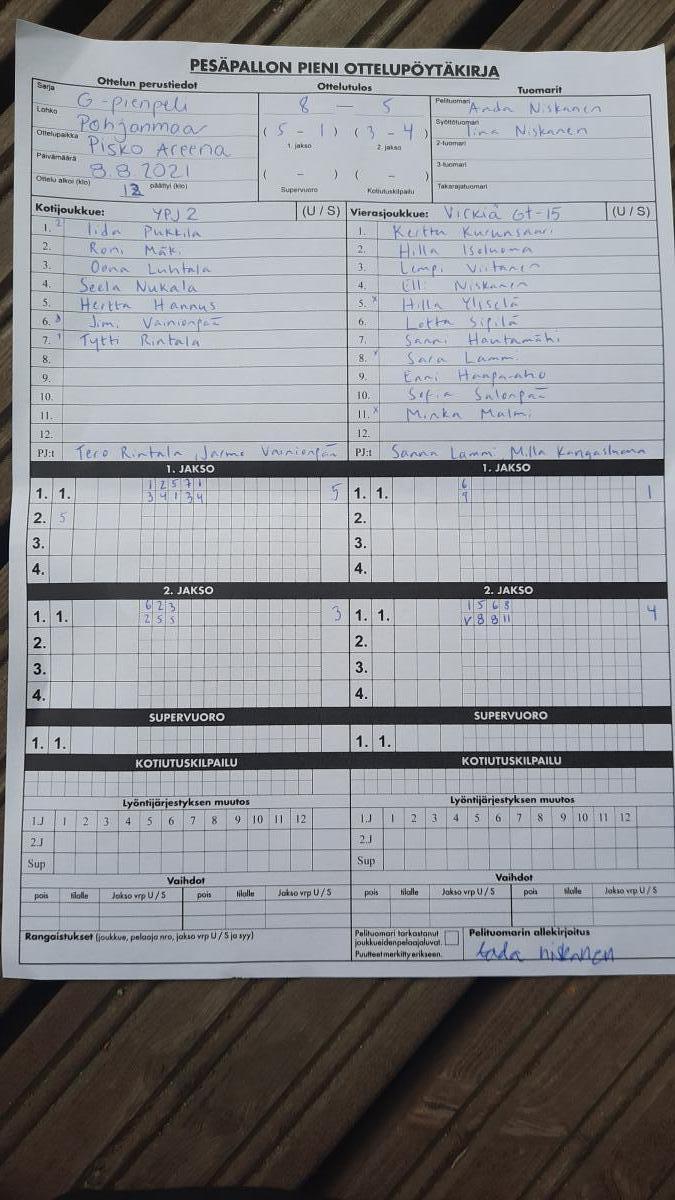 PESÄPALLON PIENI OTTELUPÖYTÄKIRJA
Ottelun perustiedot Ottelutulos Tuomarit
Sarja G-pienpeli 8 - 5 Pelituomari Niskanen
Lohko Pohjanmaa ( 5 - 1 ) ( 3 - 4 ) Syöttötuomari Tiina Niskanen
1. jakso 2. jakso
Ottelupaikka Pisko Areena 2-tuomari
Päivämäärä 8.8.2021 ( - ) ( - ) 3-tuomari
Ottelu alkoi (klo) 12 päättyi (klo) Supervuoro Kotiutuskilpailu Takarajatuomari
Kotijoukkue: YPJ 2 (U / S) Vierasjoukkue: Virkiä Gt-15 (U / S)
1. 2 Iida Pukkila 1. Kerttu Kurunsaari
2. Roni Mäki 2. Hilla Isoluoma
3. Oona Luhtala 3. Lempi Viitanen
4. Seela Nukala 4. Elli Niskanen
5. Hertta Hannus 5. x Hilla Yliselä
6. Jimi Vainionpää 6. Lotta Sipilä
7. 1 Tytti Rintala 7. Sanni Hautamäki
8. 8. x Sara Lammi
9. 9. Enni Haapa-aho
10. 10. Sofia Salonpää
11. 11. x Minka Malmi
12. 12.
PJ:t Tero Rintala, Jarmo Vainionpää PJ:t Sanna Lammi Milla Kangasluoma
1. JAKSO 1. JAKSO
1 2 5 7 1 6
1. 1. 3 4 1 3 4 5 1. 1. 9 1
2. 5 2.
3. 3.
4. 4.
2. JAKSO 2. JAKSO
6 2 3 1 5 6 8
1. 1. 2 5 5 3 1. 1. V 8 8 11 4
2. 2.
3. 3.
4. 4.
SUPERVUORO SUPERVUORO
1. 1. 1. 1.
KOTIUTUSKILPAILU KOTIUTUSKILPAILU
Lyöntijärjestyksen muutos Lyöntijärjestyksen muutos
1.J 1 2 3 4 5 6 7 8 9 10 11 12 1.J 1 2 3 4 5 6 7 8 9 10 11 12
2.J 2.J
Sup Sup
Vaihdot Vaihdot
pois tilalle Jakso vrp U / S pois tilalle Jakso vrp U / S pois tilalle Jakso vrp U / S pois tilalle Jakso vrp U / S
Rangaistukset (joukkue, pelaaja nro, jakso vrp U / S ja syy) Pelituomari tarkastanut Pelituomarin allekirjoitus
joukkueidenpelaajaluvat.
Puutteet merkitty erikseen. niskanen